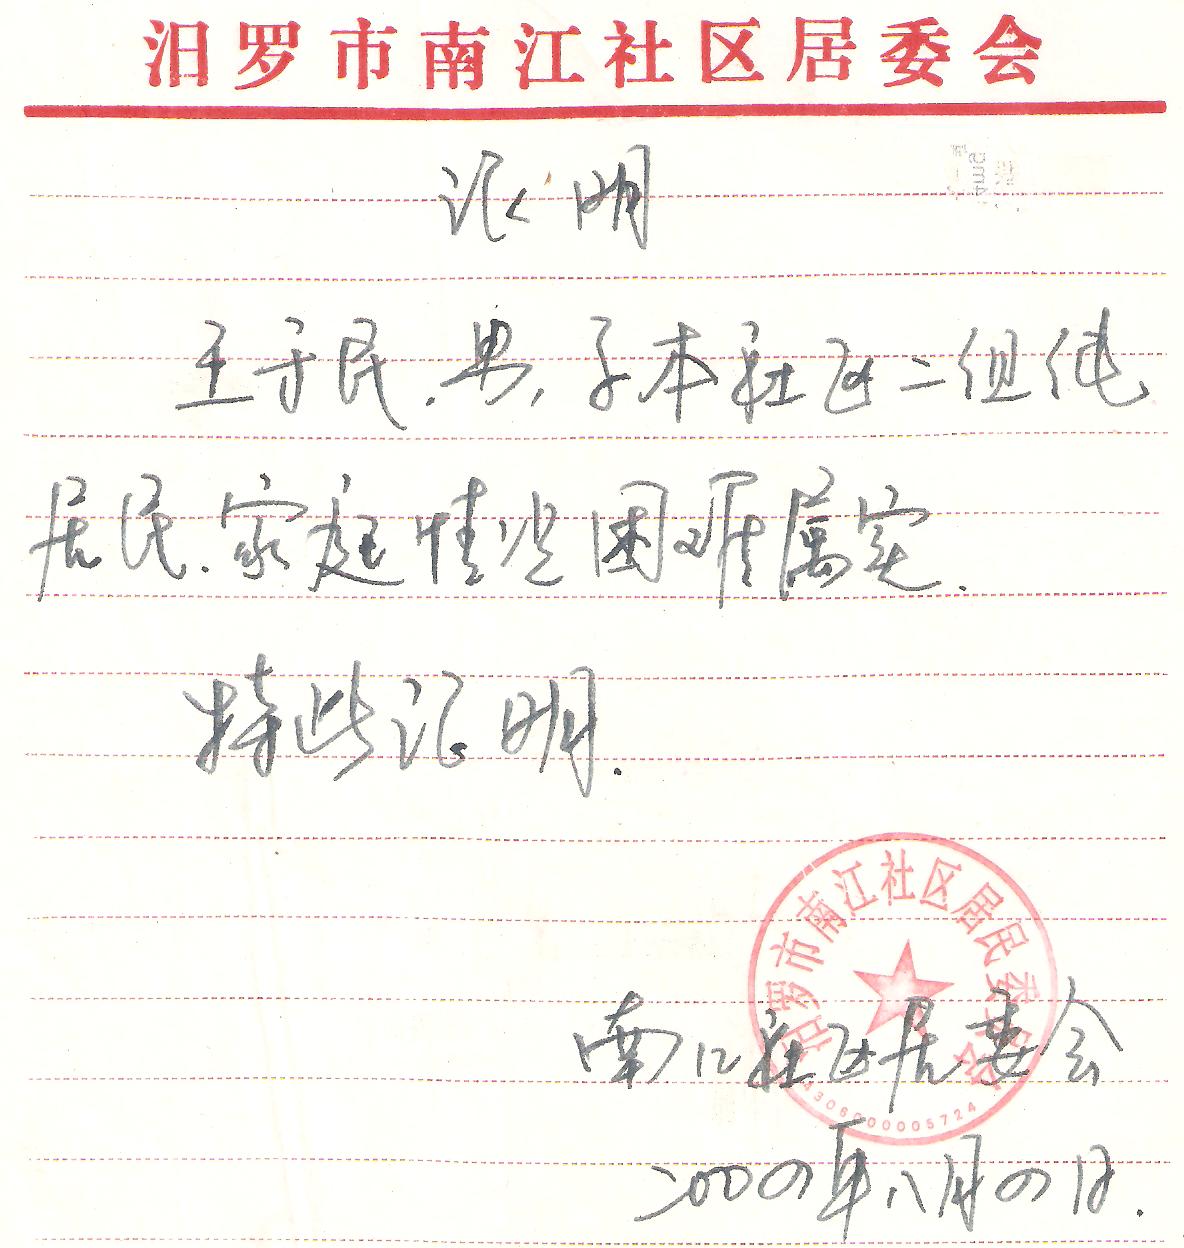 汨罗市南江社区居委会
证明
王于民.男,子本社区二组纯
居民.家庭情况困难属实.
特此证明.
汨罗市南江社区居民委员会
南江社区居委会
4306000005724
二000四年八月四日.